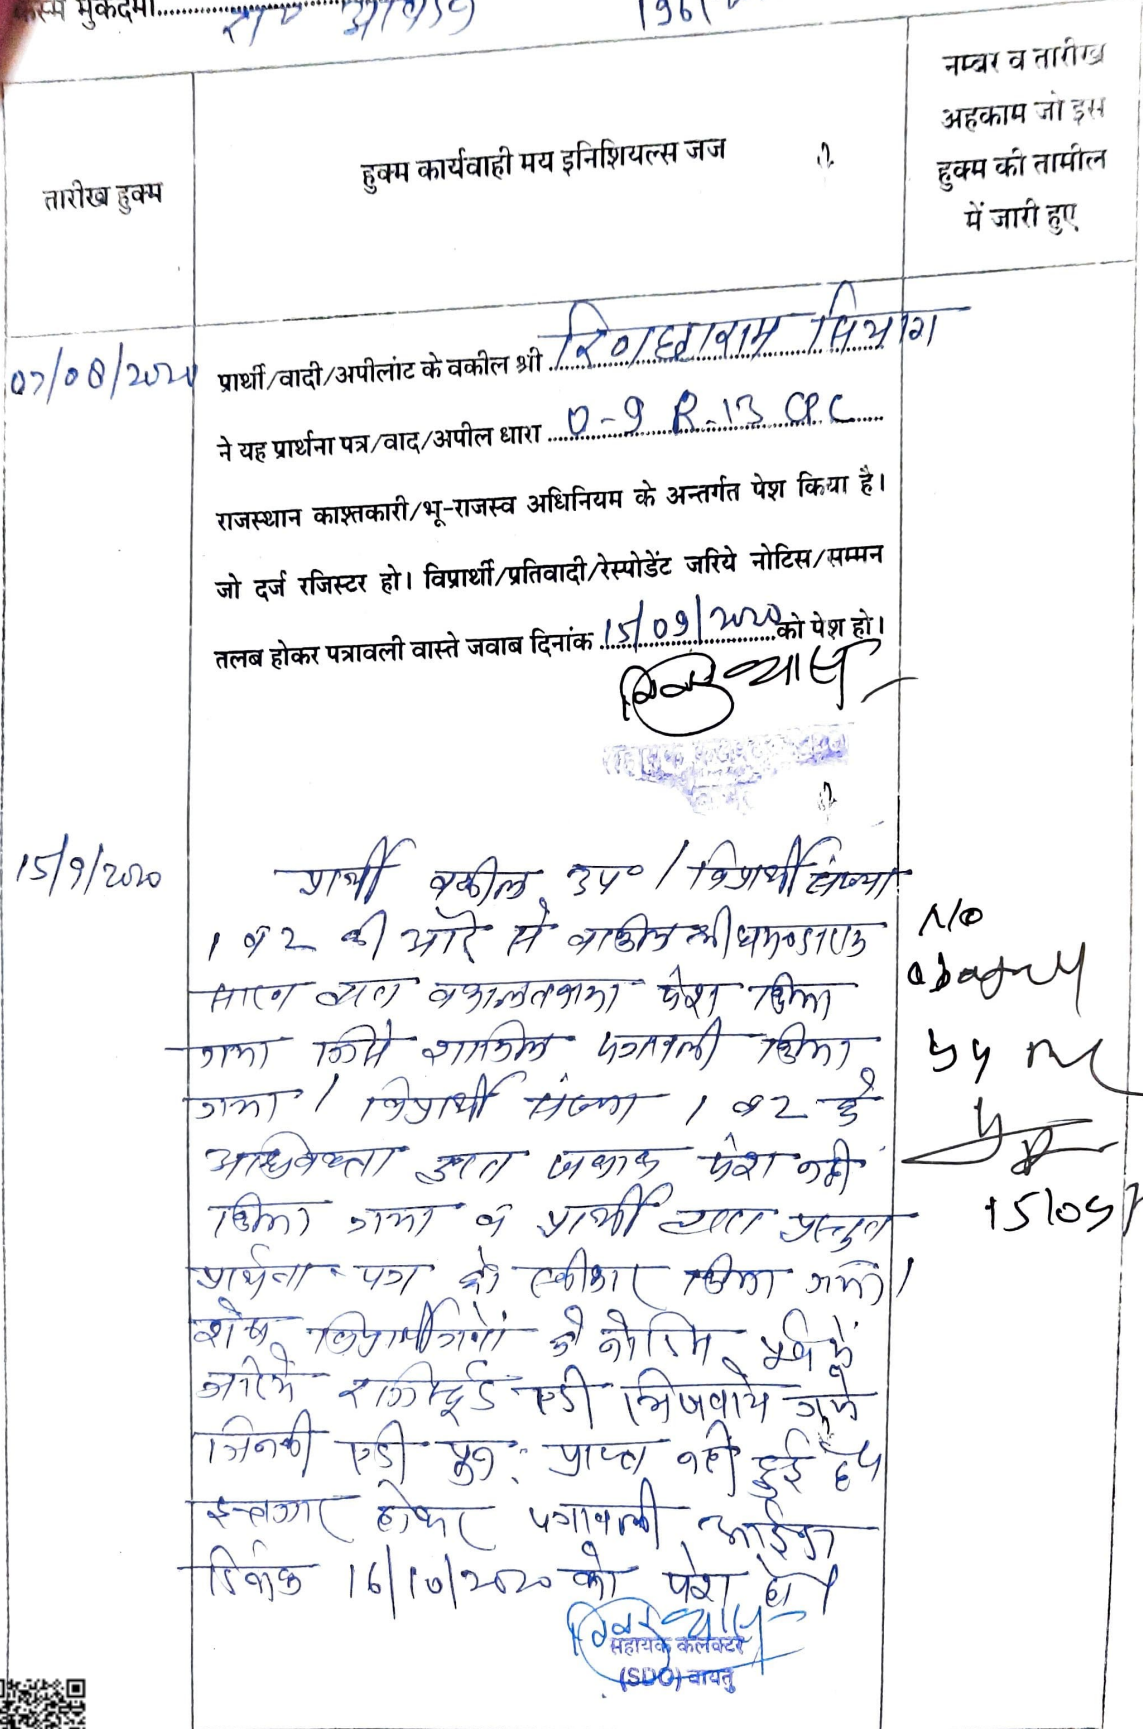 मुकदमा
तारीख हुक्म
हुक्म कार्यवाही मय इनिशियल्स जज
नम्बर व तारीख
अहकाम जो इस
हुक्म की तामील
में जारी हुए
07/08/2020
प्रार्थी/वादी/अपीलांट के वकील श्री रिणछाराम सियाग
ने यह प्रार्थना पत्र/वाद/अपील धारा O-9 R-13 CPC
राजस्थान काश्तकारी/भू-राजस्व अधिनियम के अन्तर्गत पेश किया है।
जो दर्ज रजिस्टर हो। विप्रार्थी/प्रतिवादी/रेस्पोडेंट जरिये नोटिस/सम्मन
तलब होकर पत्रावली वास्ते जवाब दिनांक 15/09/2020 को पेश हो।
15/9/2020
प्रार्थी वकील उप० / विप्रार्थी संख्या
1 व 2 की ओर से वकील श्री
द्वारा वकालतनामा पेश किया
गया जिसे शामिल पत्रावली किया
गया / विप्रार्थी संख्या 1 व 2 के
अधिवक्ता द्वारा जवाब पेश नहीं
किया गया व प्रार्थी द्वारा प्रस्तुत
प्रार्थना-पत्र को स्वीकार किया गया /
शेष विप्रार्थीगणों को नोटिस पूर्व में
जरिये रजिस्टर्ड एडी भिजवाये गये
जिनकी एडी पुन: प्राप्त नहीं हुई
इन्तजार होकर पत्रावली आईन्दा
दिनांक 16/10/2020 को पेश हो।
N/o
by me
15/09
सहायक कलक्टर
(SDO) बायतु